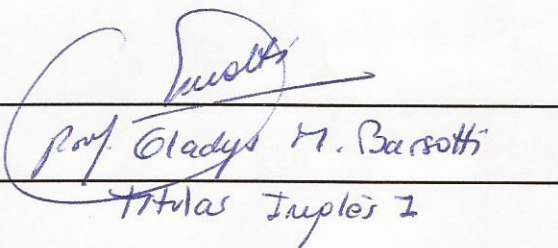 Prof. Gladys M. Barsotti
Titular Inglés I